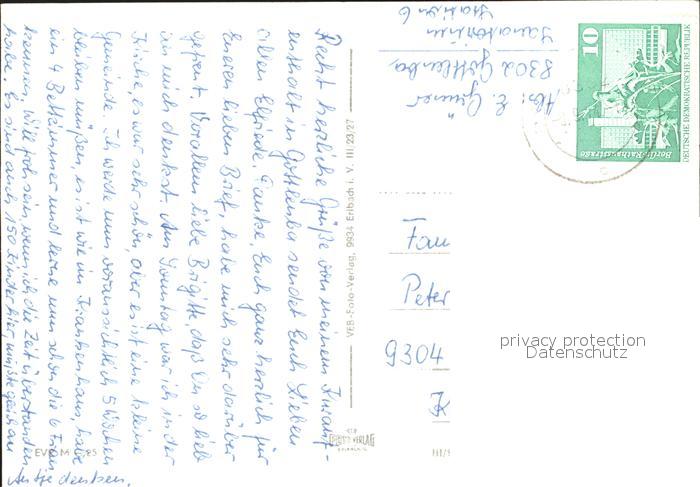 Recht herzliche Grüße von meinem Kurauf-
enthalt in Gottleuba sendet Euch Lieben
allen Elfride. Danke Euch ganz herzlich für
Eueren lieben Brief, habe mich sehr darüber
gefreut. Vor allem liebe Brigitte, daß Du so lieb
an mich denkst. Am Sonntag war ich in der
Kirche, es war sehr schön, aber es ist eine kleine
Gemeinde. Ich werde nun voraussichtlich 5 Wochen
bleiben müßen, es ist wie im Krankenhaus, habe
ein 4 Bettzimmer und lerne nun schon die 6. Frau
kennen. Will froh sein, wenn ich die Zeit überstanden
habe. Es sind auch 150 Kinder hier, mußte gleich an
Antje denken.
Abs: E. Grüner
8302 Gottleuba
Sanatorium
Station 6
Fam
Peter
9304
VEB-Foto-Verlag, 9934 Erlbach i. V. III/26/27
FOTO VERLAG
ERLBACH
EVP M 85
III/1
10
Berlin-Rathausstraße
DEUTSCHE DEMOKRATISCHE REPUBLIK
privacy protection
Datenschutz